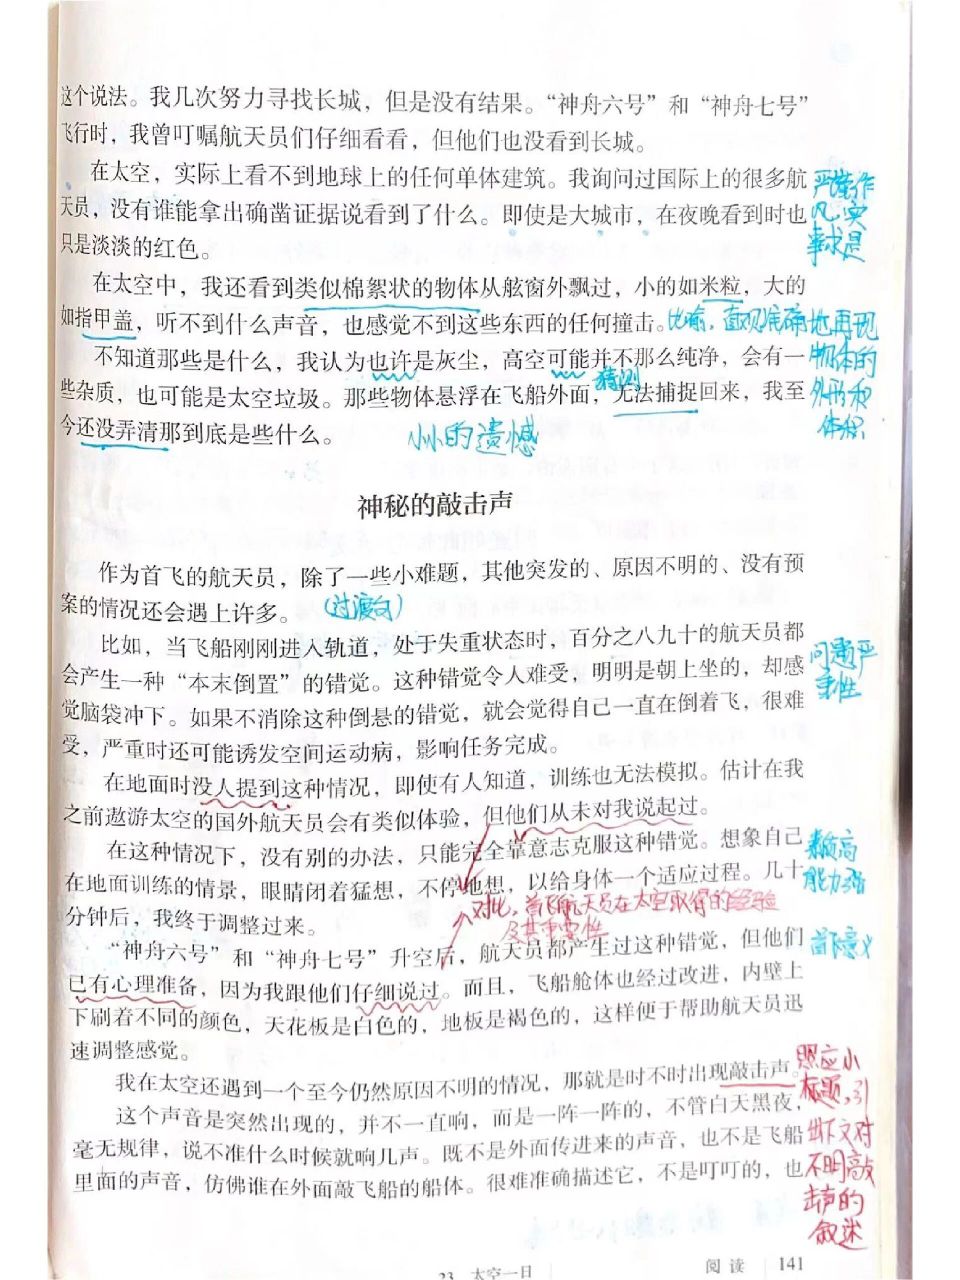 这个说法。我几次努力寻找长城，但是没有结果。“神舟六号”和“神舟七号”
飞行时，我曾叮嘱航天员们仔细看看，但他们也没看到长城。
在太空，实际上看不到地球上的任何单体建筑。我询问过国际上的很多航
天员，没有谁能拿出确凿证据说看到了什么。即使是大城市，在夜晚看到时也
只是淡淡的红色。
严谨作
风，实
事求是
在太空中，我还看到类似棉絮状的物体从舷窗外飘过，小的如米粒，大的
如指甲盖，听不到什么声音，也感觉不到这些东西的任何撞击。
比喻，直观准确地再现
物体的
外形和
体积
不知道那些是什么，我认为也许是灰尘，高空可能并不那么纯净，会有一
猜测
些杂质，也可能是太空垃圾。那些物体悬浮在飞船外面，无法捕捉回来，我至
今还没弄清那到底是些什么。
小小的遗憾
神秘的敲击声
作为首飞的航天员，除了一些小难题，其他突发的、原因不明的、没有预
案的情况还会遇上许多。
（过渡句）
比如，当飞船刚刚进入轨道，处于失重状态时，百分之八九十的航天员都
会产生一种“本末倒置”的错觉。这种错觉令人难受，明明是朝上坐的，却感
觉脑袋冲下。如果不消除这种倒悬的错觉，就会觉得自己一直在倒着飞，很难
受，严重时还可能诱发空间运动病，影响任务完成。
问题严
重性
在地面时没人提到这种情况，即使有人知道，训练也无法模拟。估计在我
之前遨游太空的国外航天员会有类似体验，但他们从未对我说起过。
在这种情况下，没有别的办法，只能完全靠意志克服这种错觉。想象自己
在地面训练的情景，眼睛闭着猛想，不停地想，以给身体一个适应过程。几十
分钟后，我终于调整过来。
高
能力强
对比，首飞航天员在太空取得的经验
及其重要性
首飞意义
“神舟六号”和“神舟七号”升空后，航天员都产生过这种错觉，但他们
已有心理准备，因为我跟他们仔细说过。而且，飞船舱体也经过改进，内壁上
下刷着不同的颜色，天花板是白色的，地板是褐色的，这样便于帮助航天员迅
速调整感觉。
我在太空还遇到一个至今仍然原因不明的情况，那就是时不时出现敲击声。
这个声音是突然出现的，并不一直响，而是一阵一阵的，不管白天黑夜，
毫无规律，说不准什么时候就响几声。既不是外面传进来的声音，也不是飞船
里面的声音，仿佛谁在外面敲飞船的船体。很难准确描述它，不是叮叮的，也
照应小
标题，引
出下文对
不明敲
击声的
叙述
23 太空一日
阅读 141